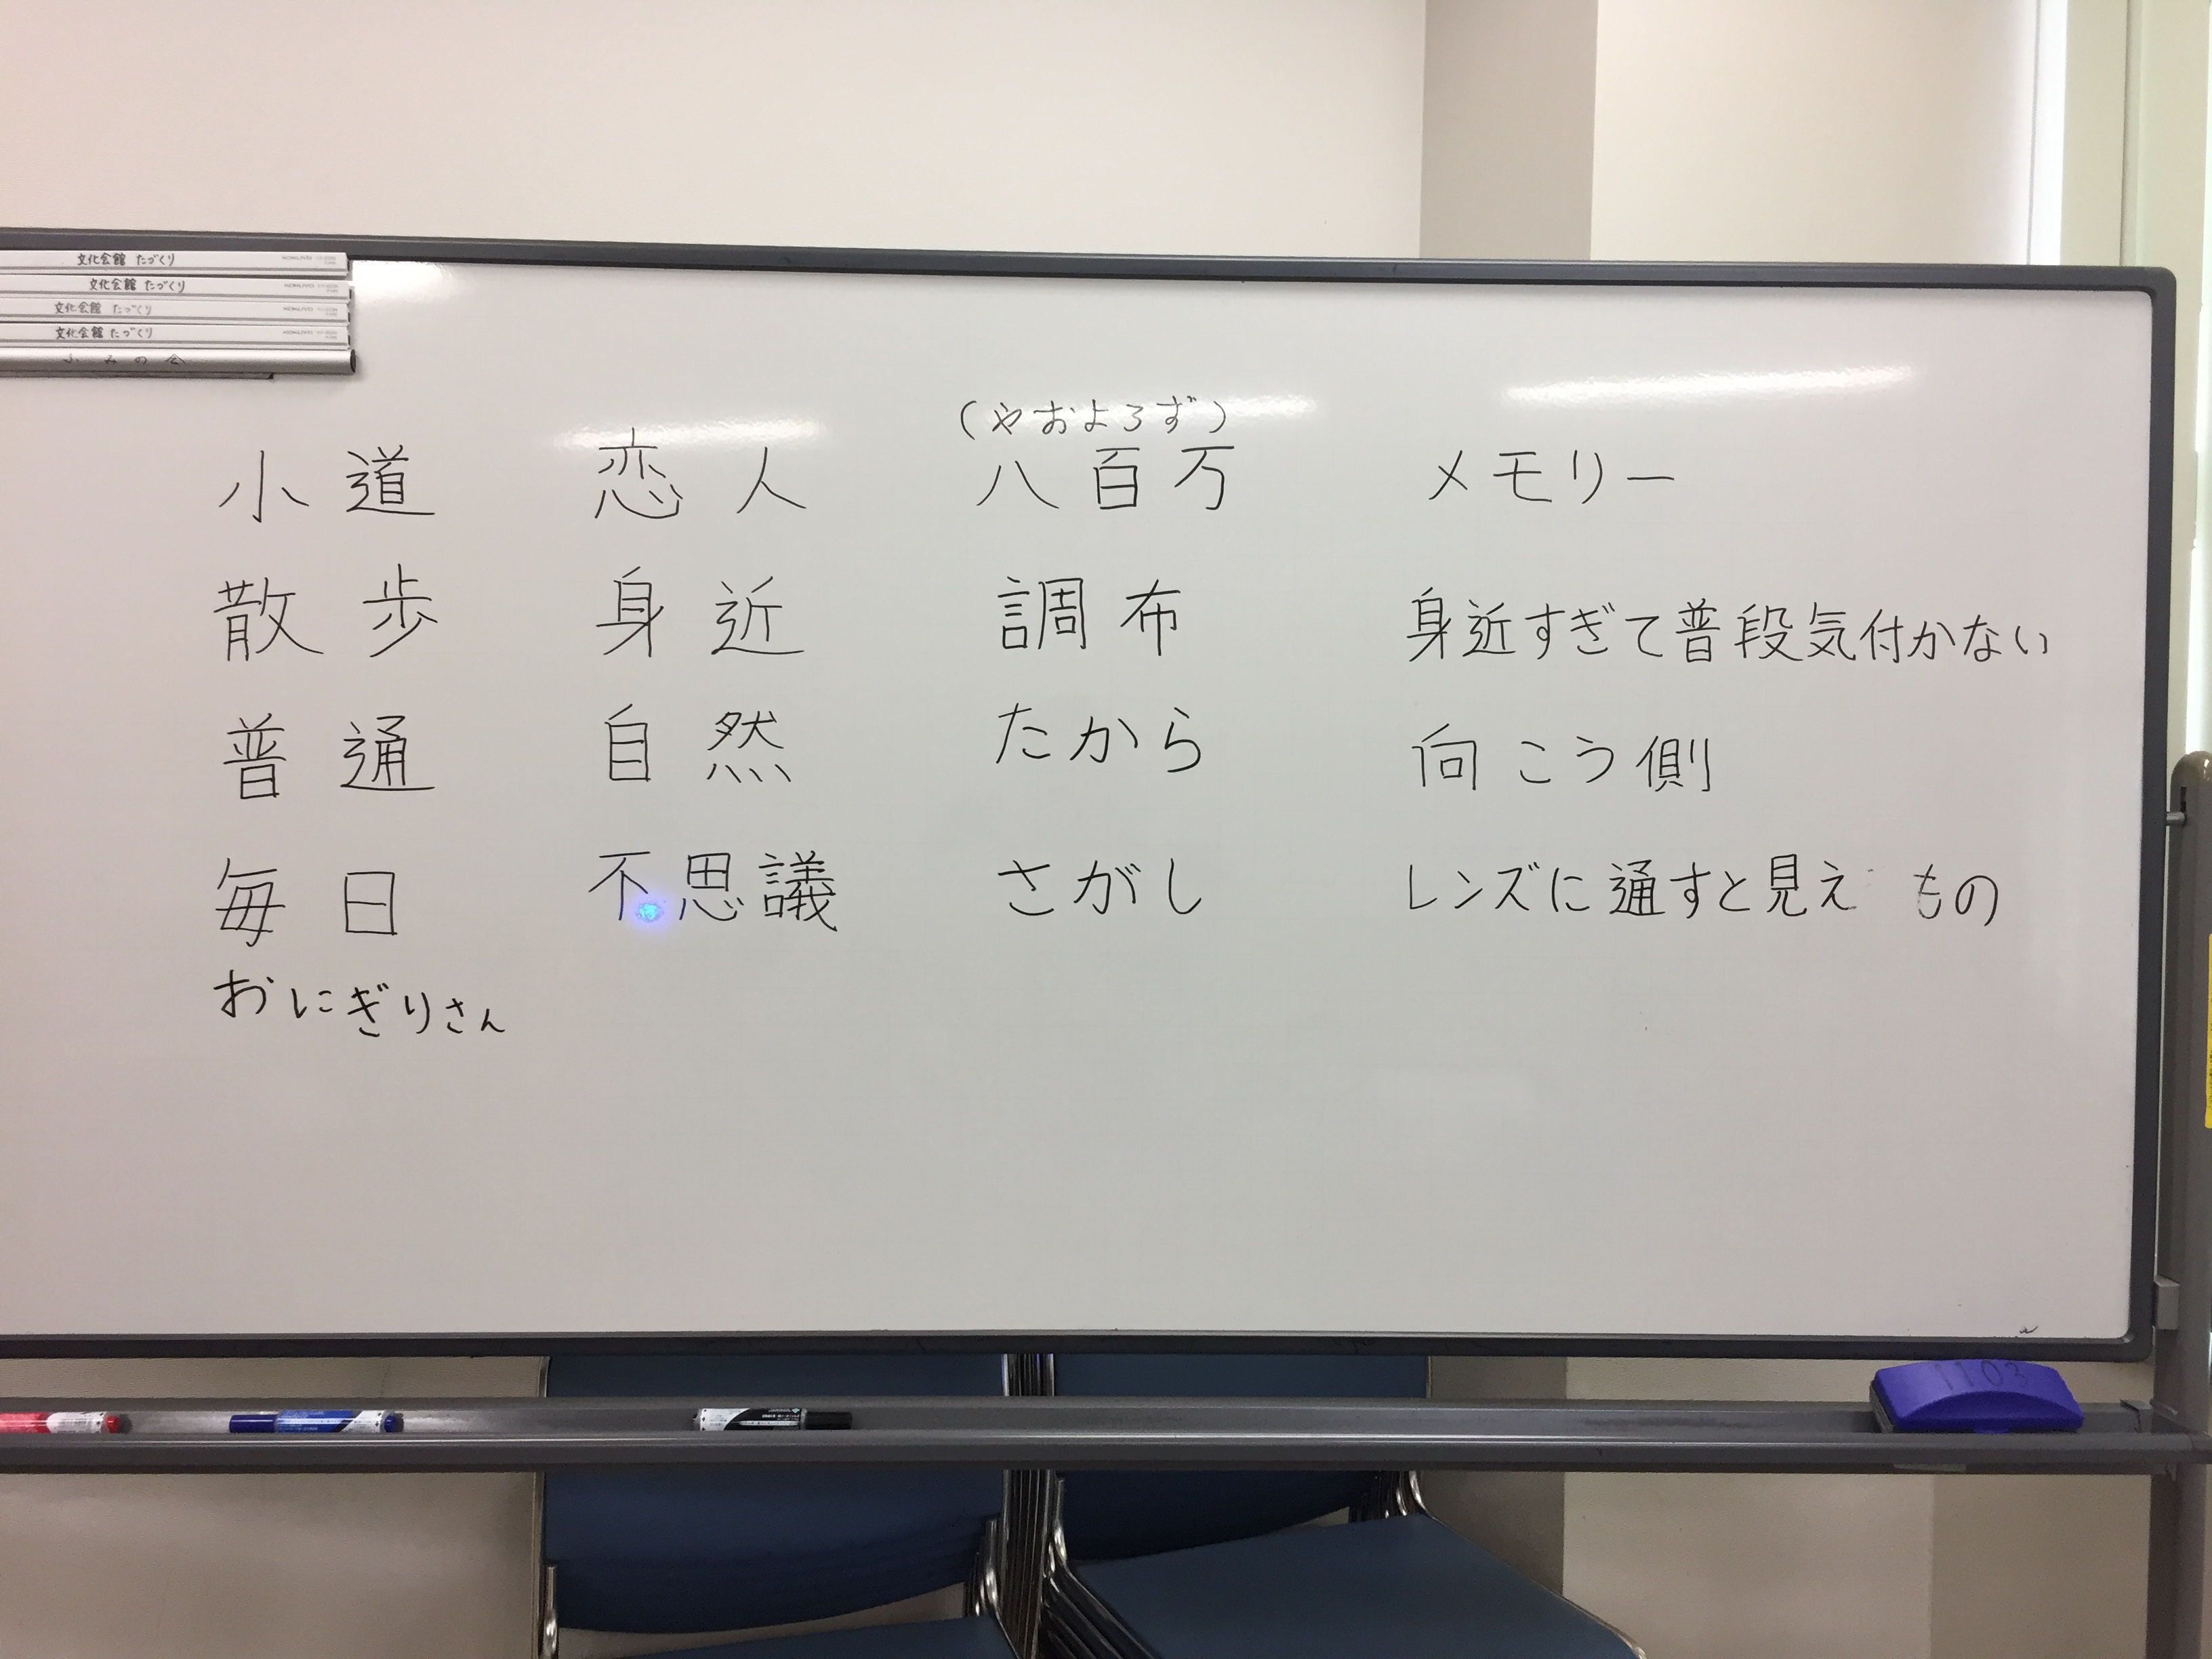 文化会館 たづくり
文化会館 たづくり
文化会館 たづくり
文化会館 たづくり
ふみの会
(やおよろず)
小道 恋人 八百万 メモリー
散歩 身近 調布 身近すぎて普段気付かない
普通 自然 たから 向こう側
毎日 不思議 さがし レンズに通すと見え もの
おにぎりさん
1103